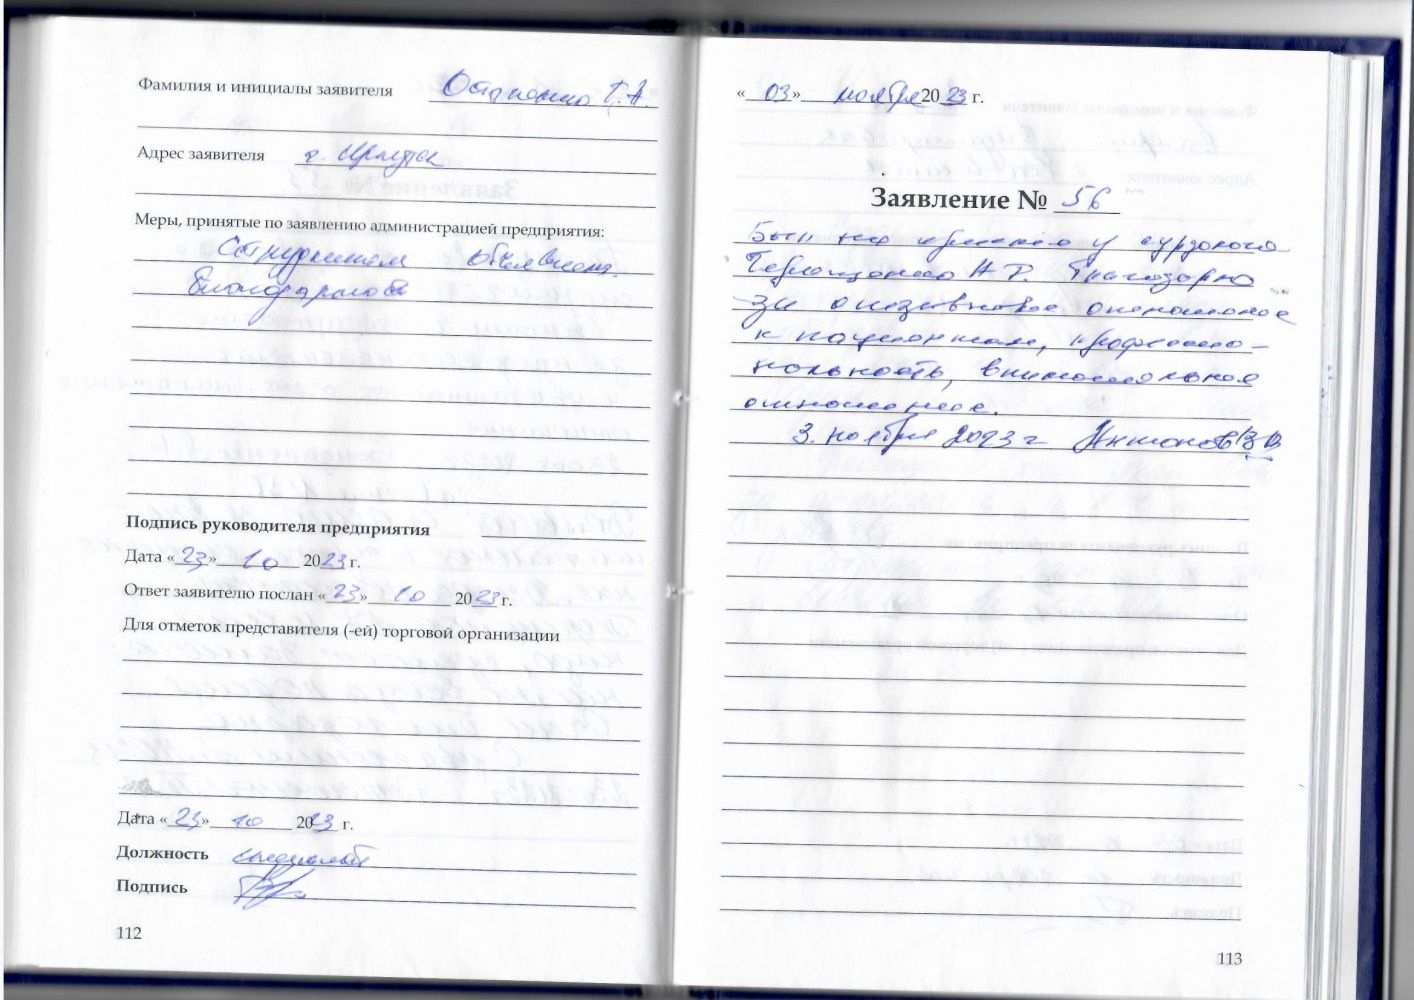 Фамилия и инициалы заявителя Остапенко Г.А.
Адрес заявителя г. Иркутск
Меры, принятые по заявлению администрацией предприятия:
Сотрудникам объявлена
благодарность
Подпись руководителя предприятия
Дата «23» 10 2023 г.
Ответ заявителю послан «23» 10 2023 г.
Для отметок представителя (-ей) торговой организации
Дата «23» 10 2023 г.
Должность специалист
Подпись
112
«03» ноября 2023 г.
Заявление № 56
Был на приеме у сурдолога
Терещенко Н.Р. Благодарю
за отзывчивое отношение
к пациентам, профессио-
нальность, внимательное
отношение.
3. ноября 2023 г Антонов
113